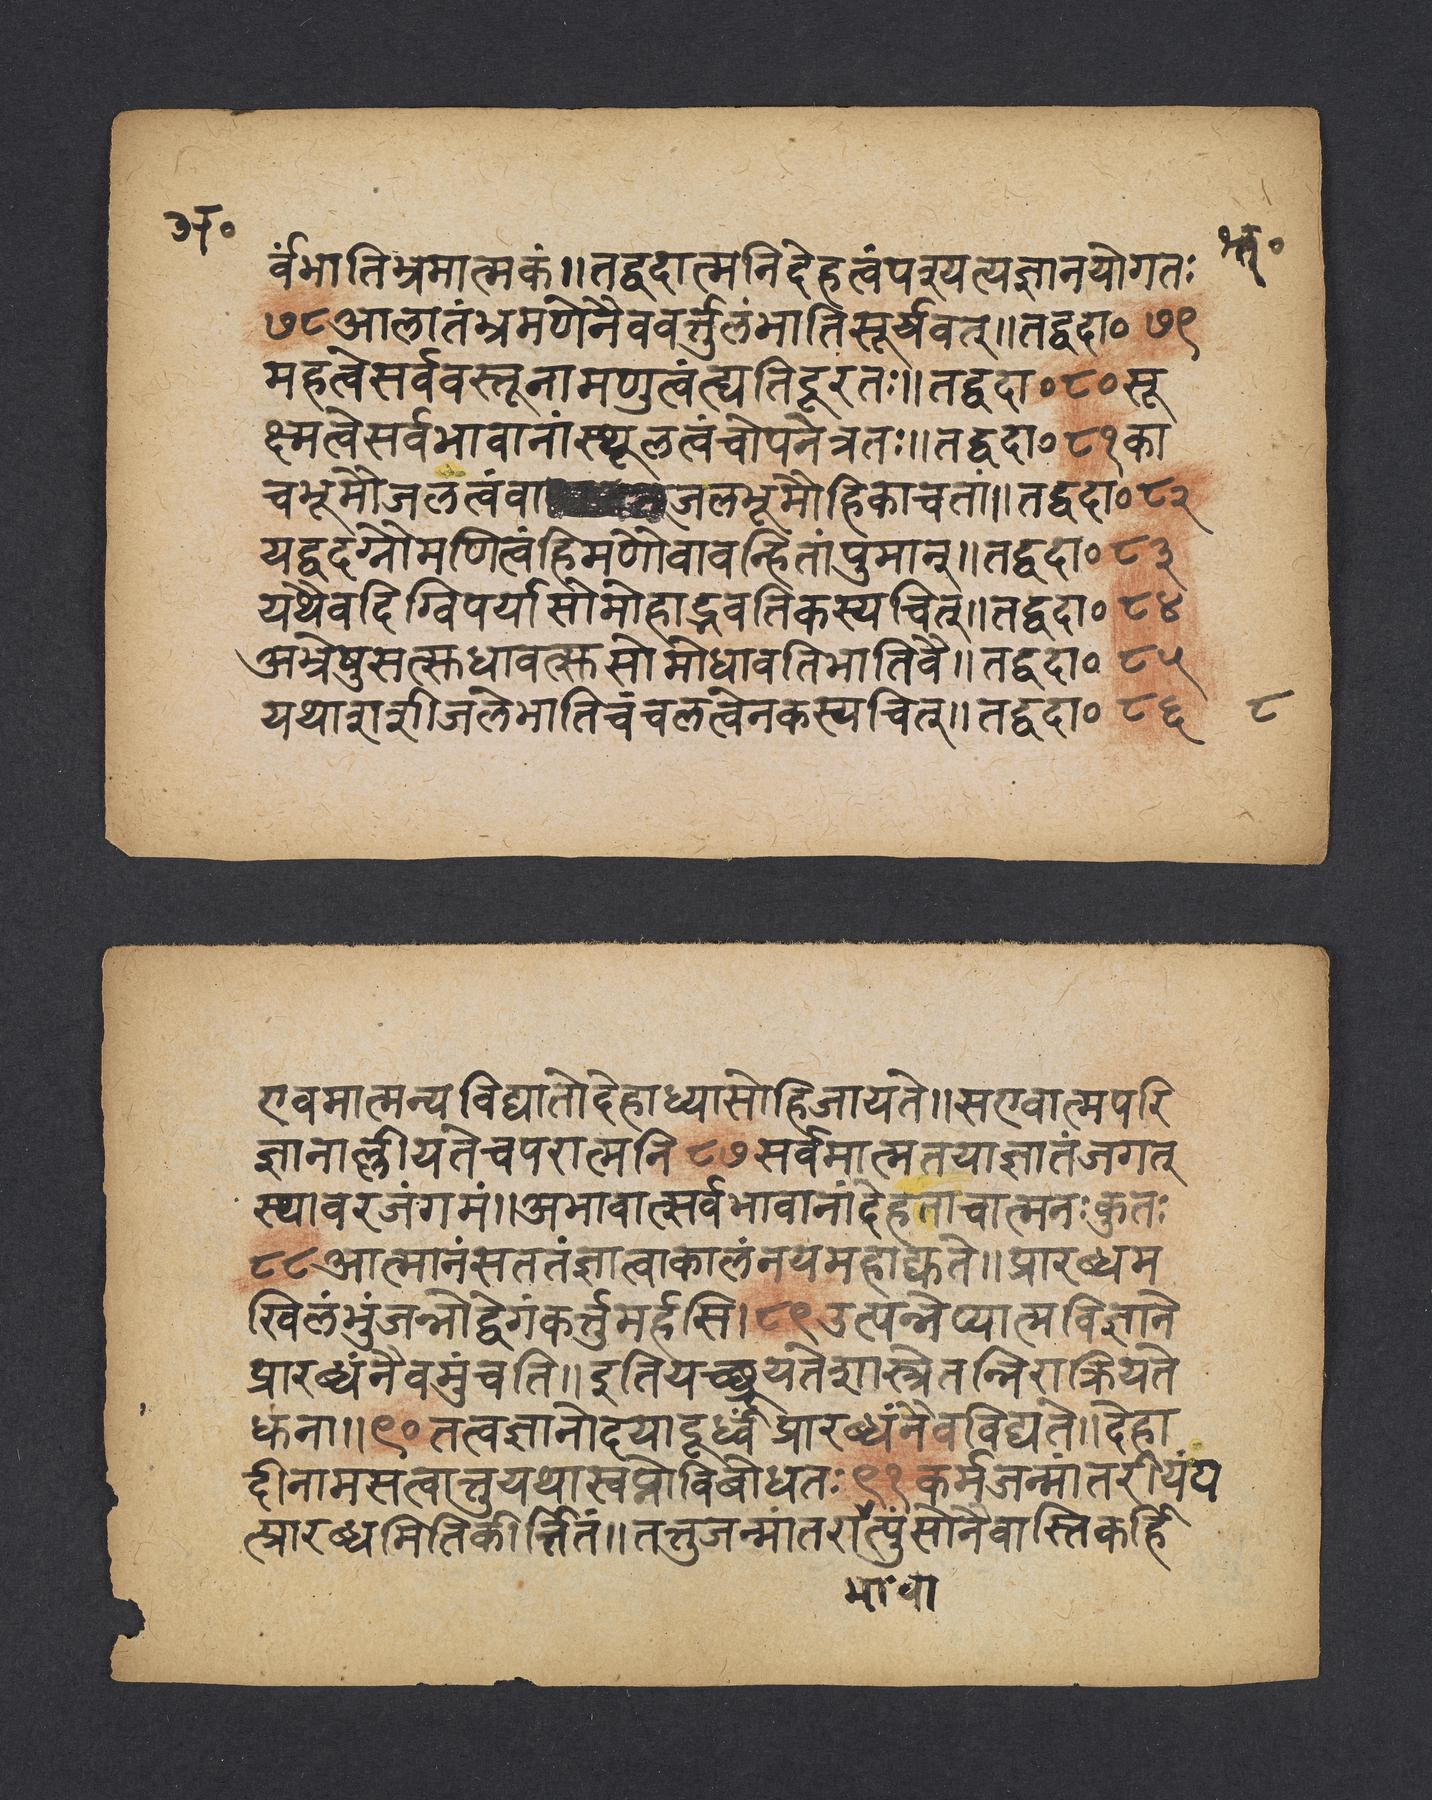 अ॰
र्वंभातिभ्रमात्मकं॥तद्वदात्मनिदेहत्वंपश्यत्यज्ञानयोगतः
७८आलातंभ्रमणेनैववर्त्तुलंभातिसूर्यवत्॥तद्वदा॰ ७९
महत्वेसर्ववस्तूनामणुत्वंत्द्यतिदूरतः॥तद्वदा॰८०सू
क्ष्मत्वेसर्वभावानांस्थूलत्वंचोपनेत्रतः॥तद्वदा॰८१का
चभूमौजलत्वंवाजलभूमौहिकाचतां॥तद्वदा॰८२
यद्वदग्नौमणित्वंहिमणोवावन्हितांपुमान्॥तद्वदा॰८३
यथैवदिग्विपर्यासोमोहाद्भवतिकस्यचित्॥तद्वदा॰ ८४
अभ्रेषुसत्स्रुधावत्स्रुसोमोधावतिभातिवै॥तद्वदा॰ ८५
यथाशशीजलेभातिचंचलत्वेनकस्यचित्॥तद्वदा॰ ८६
८
एवमात्मन्यविद्यातोदेहाध्यासोहिजायते॥सएवात्मपरि
ज्ञानाल्लीयतेचपरात्मनि ८७सर्वमात्मतयाज्ञातंजगत्
स्थावरजंगमं॥अभावात्सर्वभावानांदेहताचात्मनःकुतः
८८आत्मानंसततंज्ञात्वाकालंनयमहाद्युते॥प्रारब्धम
खिलंभुंजन्नोद्वेगंकर्त्तुमर्हसि।८९उत्पन्नेप्यात्मविज्ञाने
प्रारब्धंनैवमुंचति॥इतियच्छ्रूयतेशास्त्रेतन्निराक्रियते
धुना॥९०तत्वज्ञानोदयादूर्ध्वंप्रारब्धंनैवविद्यते॥देहा
दीनामसत्वात्तुयथास्वप्नोविबोधतः९१कर्मजन्मांतरीयंय
त्प्रारब्धमितिकीर्त्तितं॥तत्तुजन्मांतरात्पुंसोनैवास्तिकर्हि
भावा